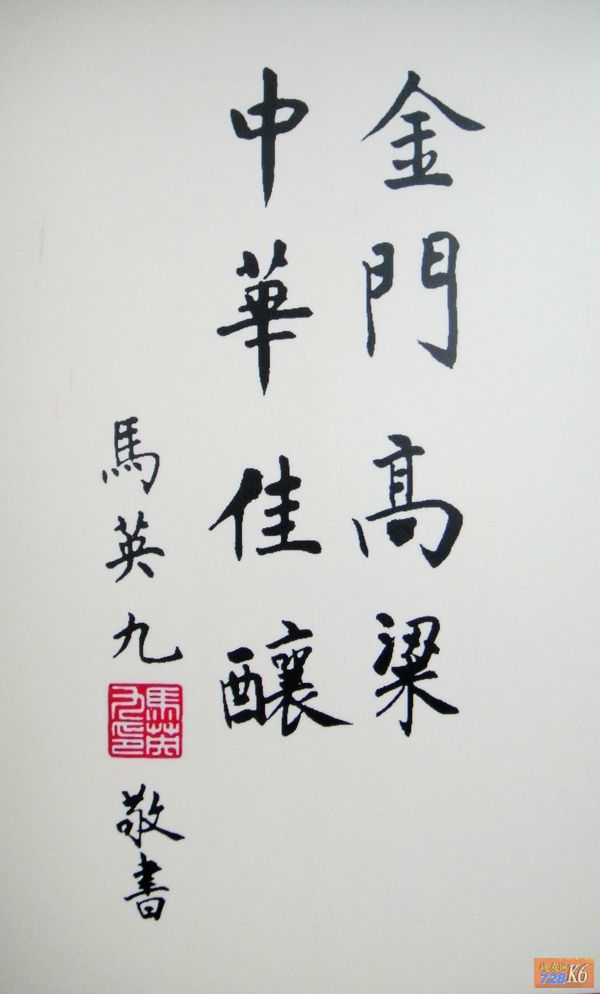 金門高粱
中華佳釀
馬英九
馬英九印
敬書
728
K6